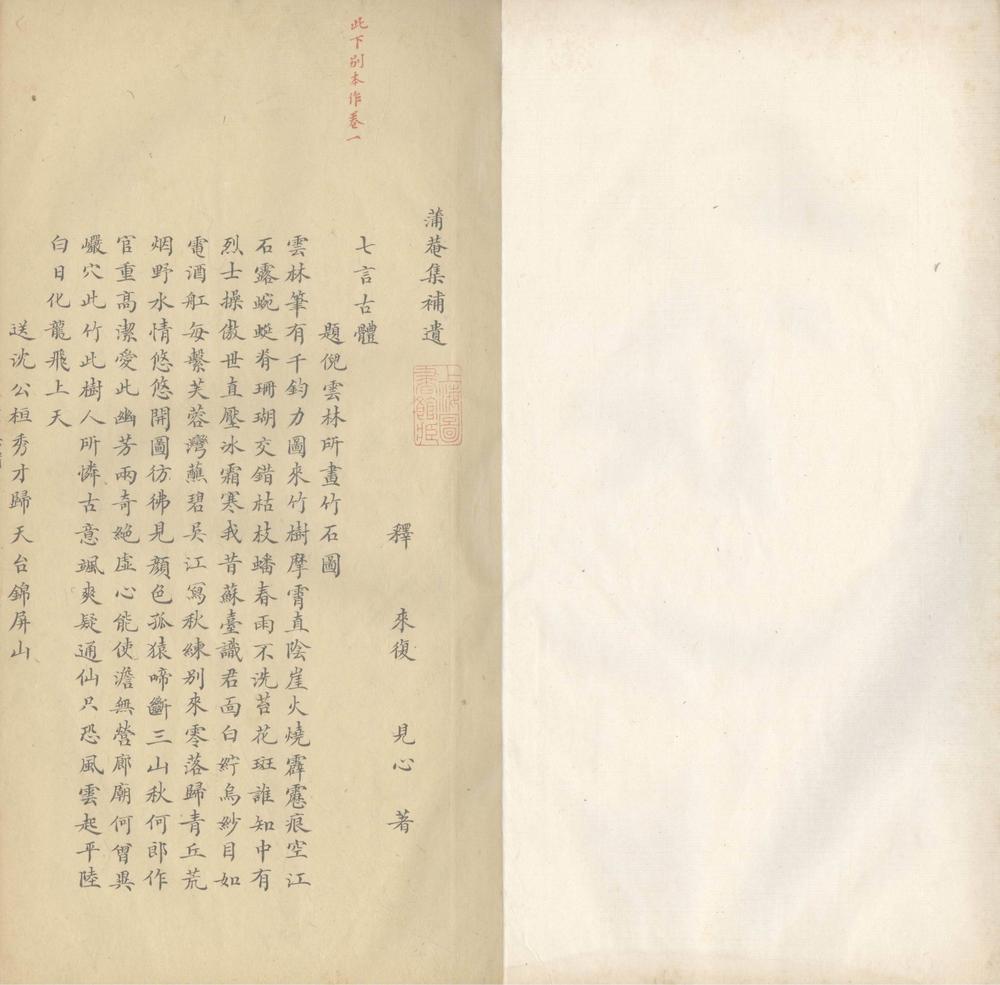 此下別本作卷一
蒲菴集補遺
上海圖書館藏
釋 來復 見心 著
七言古體
題倪雲林所畫竹石圖
雲林筆有千鈞力圖來竹樹摩霄直陰崖火燒霹靂痕空江
石露蜿蜒脊珊瑚交錯枯枝蟠春雨不洗苔花斑誰知中有
烈士操傲世直壓冰霜寒我昔蘇臺識君面白紵烏紗目如
電酒舡每繫芙蓉灣蘸碧吳江寫秋練別來零落歸青丘荒
烟野水情悠悠開圖彷彿見顏色孤猿啼斷三山秋何郎作
官重高潔愛此幽芳兩奇絕虛心能使澹無營廊廟何曾異
巖穴此竹此樹人所憐古意颯爽疑通仙只恐風雲起平陸
白日化龍飛上天
送沈公桓秀才歸天台錦屏山